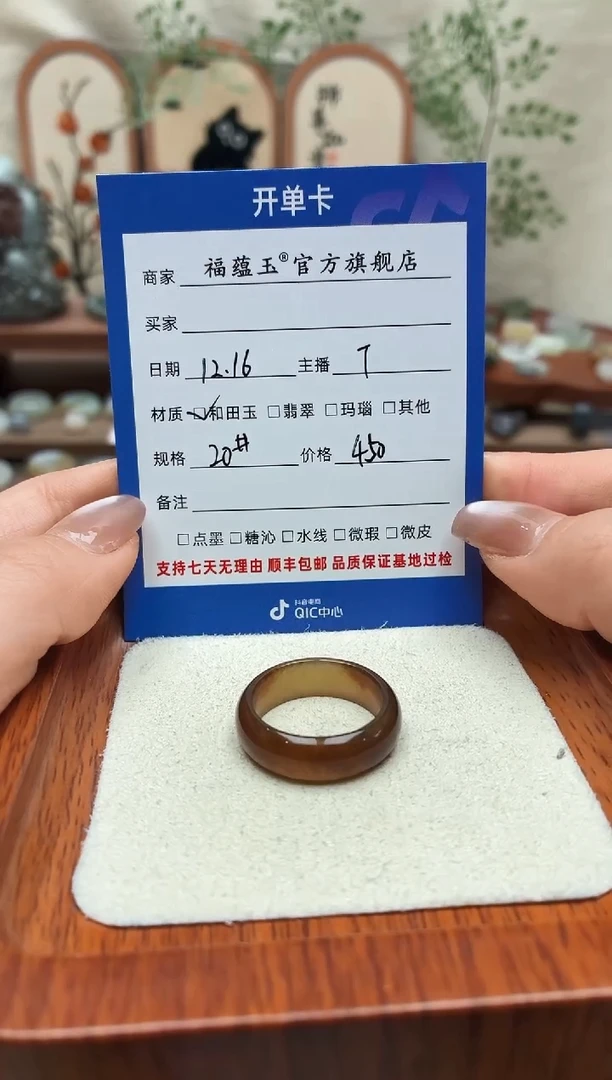 开单卡
商家 福蕴玉®官方旗舰店
买家
日期 12.16 主播 T
材质 ☑和田玉 □翡翠 □玛瑙 □其他
规格 20# 价格 450
备注
□点墨 □糖沁 □水线 □微瑕 □微皮
支持七天无理由 顺丰包邮 品质保证基地过检
抖音电商
QIC中心